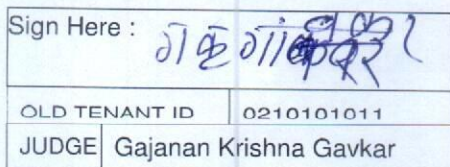 Sign Here :
OLD TENANT ID 0210101011
JUDGE Gajanan Krishna Gavkar